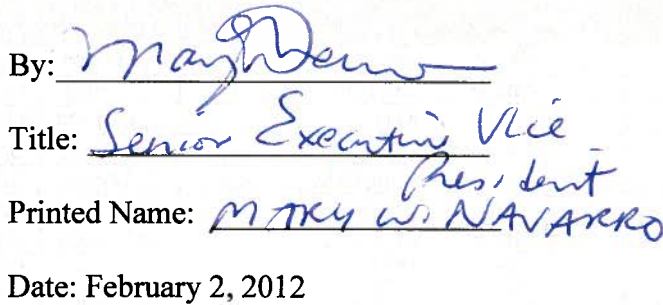 By:
Title: Senior Executive Vice
President
Printed Name: MARY W. NAVARRO
Date: February 2, 2012